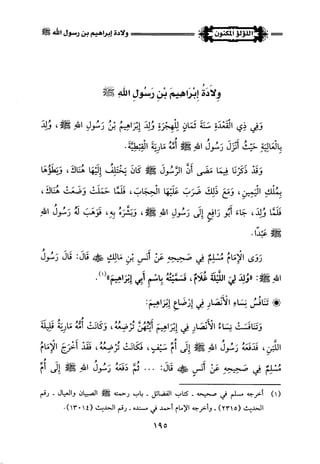 اللؤلؤ المكنون
ولادة إبراهيم بن رسول الله ﷺ
وِلَادَةُ إِبْرَاهِيمَ بْنِ رَسُولِ اللهِ ﷺ
وَفِي ذِي الْقَعْدَةِ سَنَةَ ثَمَانٍ لِلْهِجْرَةِ وُلِدَ إِبْرَاهِيمُ بْنُ رَسُولِ اللهِ ﷺ، وُلِدَ
بِالْعَالِيَةِ حَيْثُ أَنْزَلَ رَسُولُ اللهِ ﷺ أُمَّهُ مَارِيَةَ الْقِبْطِيَّةَ.
وَقَدْ ذَكَرْنَا فِيمَا مَضَى أَنَّ الرَّسُولَ ﷺ كَانَ يَخْتَلِفُ إِلَيْهَا هُنَاكَ، وَيَطَؤُهَا
بِمُلْكِ الْيَمِينِ، وَمَعَ ذَلِكَ ضَرَبَ عَلَيْهَا الْحِجَابَ، فَلَمَّا حَمَلَتْ وَضَعَتْ هُنَاكَ،
فَلَمَّا وُلِدَ، جَاءَ أَبُو رَافِعٍ إِلَى رَسُولِ اللهِ ﷺ، وَبَشَّرَهُ بِهِ، فَوَهَبَ لَهُ رَسُولُ اللهِ
ﷺ عَبْدًا.
رَوَى الْإِمَامُ مُسْلِمٌ فِي صَحِيحِهِ عَنْ أَنَسِ بْنِ مَالِكٍ ﷺ قَالَ: قَالَ رَسُولُ
اللهِ ﷺ: «وُلِدَ لِيَ اللَّيْلَةَ غُلَامٌ، فَسَمَّيْتُهُ بِاسْمِ أَبِي إِبْرَاهِيمَ»(١).
تَنَافُسُ نِسَاءِ الْأَنْصَارِ فِي إِرْضَاعِ إِبْرَاهِيمَ:
وَتَنَافَسَتْ نِسَاءُ الْأَنْصَارِ فِي إِبْرَاهِيمَ أَيَّتُهُنَّ تُرْضِعُهُ، وَكَانَتْ أُمُّهُ مَارِيَةُ قَلِيلَةَ
اللَّبَنِ، فَدَفَعَهُ رَسُولُ اللهِ ﷺ إِلَى أُمِّ سَيْفٍ، فَكَانَتْ تُرْضِعُهُ، فَقَدْ أَخْرَجَ الْإِمَامُ
مُسْلِمٌ فِي صَحِيحِهِ عَنْ أَنَسٍ قَالَ: ... ثُمَّ دَفَعَهُ رَسُولُ اللهِ ﷺ إِلَى أُمِّ
(١) أخرجه مسلم في صحيحه - كتاب الفضائل - باب رحمته ﷺ الصبيان والعيال - رقم
الحديث (٢٣١٥) - وأخرجه الإمام أحمد في مسنده - رقم الحديث (١٣٠١٤).
١٩٥